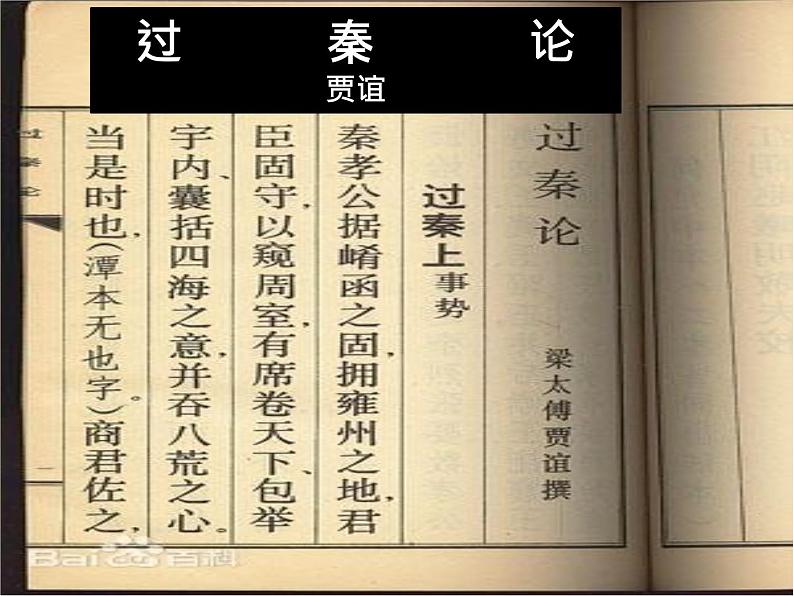 过 秦 论
贾谊
过秦论
梁太傅贾谊撰
过秦上 事势
秦孝公据崤函之固，拥雍州之地，君
臣固守，以窥周室，有席卷天下、包举
宇内、囊括四海之意，并吞八荒之心。
当是时也，（潭本无也字。）商君佐之，
过秦论
一
Bai百科